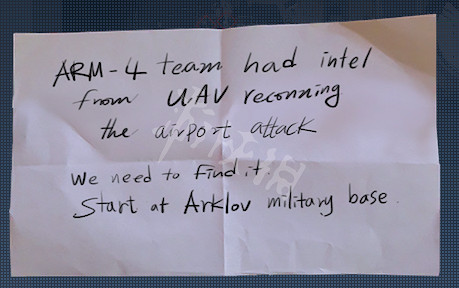 ARM-4 team had intel
from UAV reconning
the airport attack
We need to find it.
Start at Arklov military base.